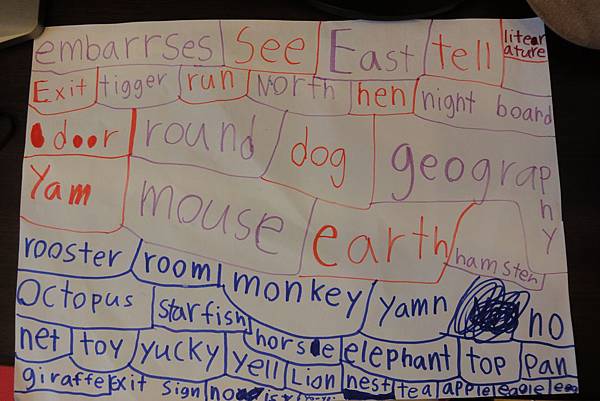 embarrses see East tell literature
Exit tigger run North hen night board
door round dog geography
Yam mouse earth hamster
rooster room monkey yamn no
Octopus starfish
net toy yucky yell horse elephant top pan
giraffe Exit sign Lion nest tea apple eagle